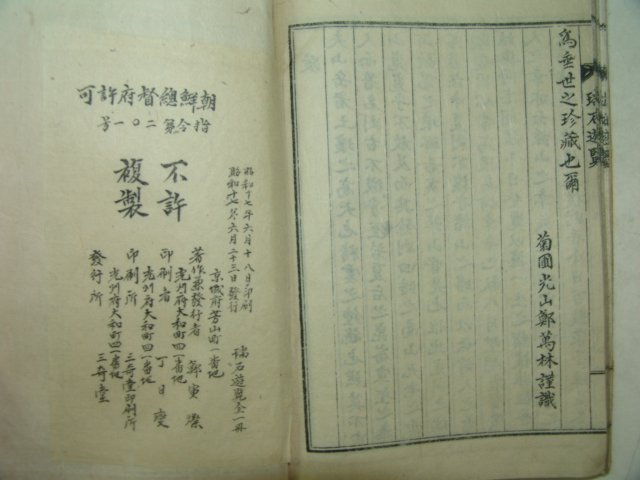 瑞石遊覽
為垂世之珍藏也爾
菊圃光山鄭萬林謹識
朝鮮總督府許可
指令第二〇一号
不許
複製
昭和十七年六月十八日印刷
昭和十七年六月二十三日發行
瑞石遊覽全一冊
京城府芳山町一番地
著作兼發行者 鄭寅
光州府大和町四一番地
印刷者 丁日慶
光州府大和町四一番地
印刷所 三奇堂印刷所
光州府大和町四一番地
發行所 三奇堂